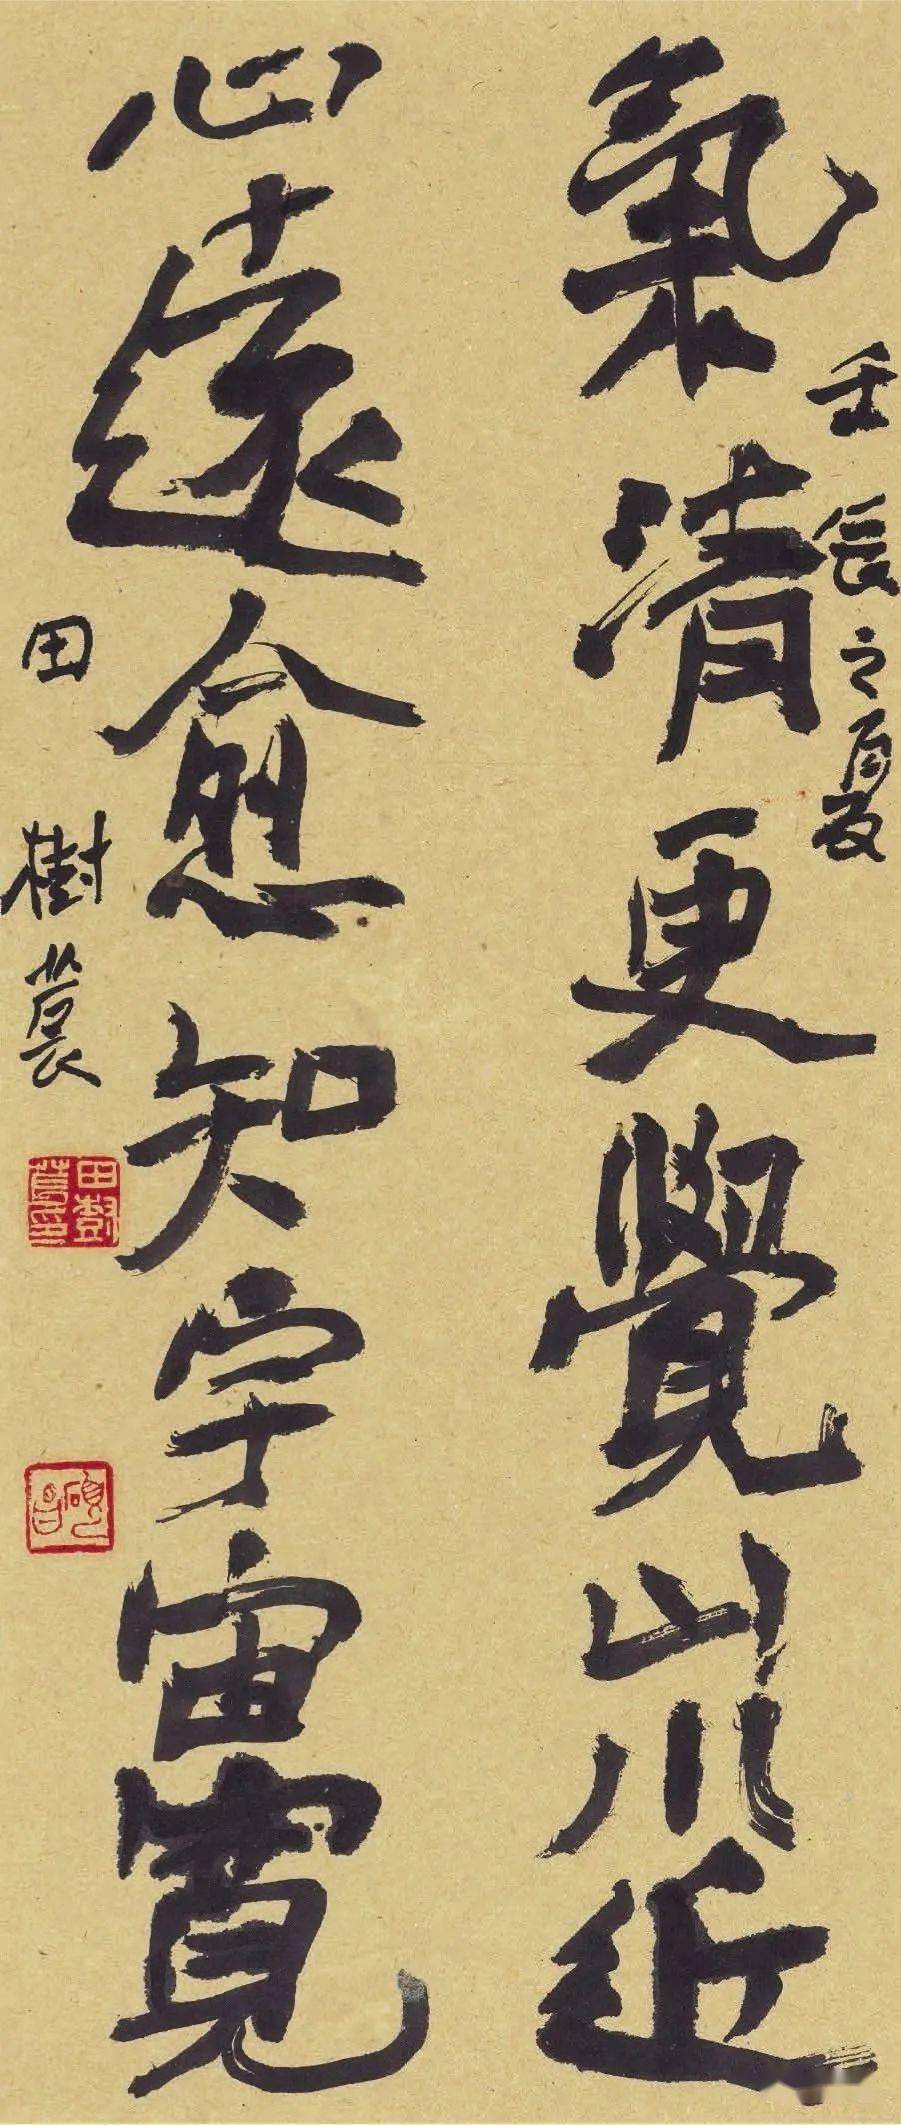 壬辰之夏
氣清更覺山川近
心遠愈知宇宙寬
田樹萇